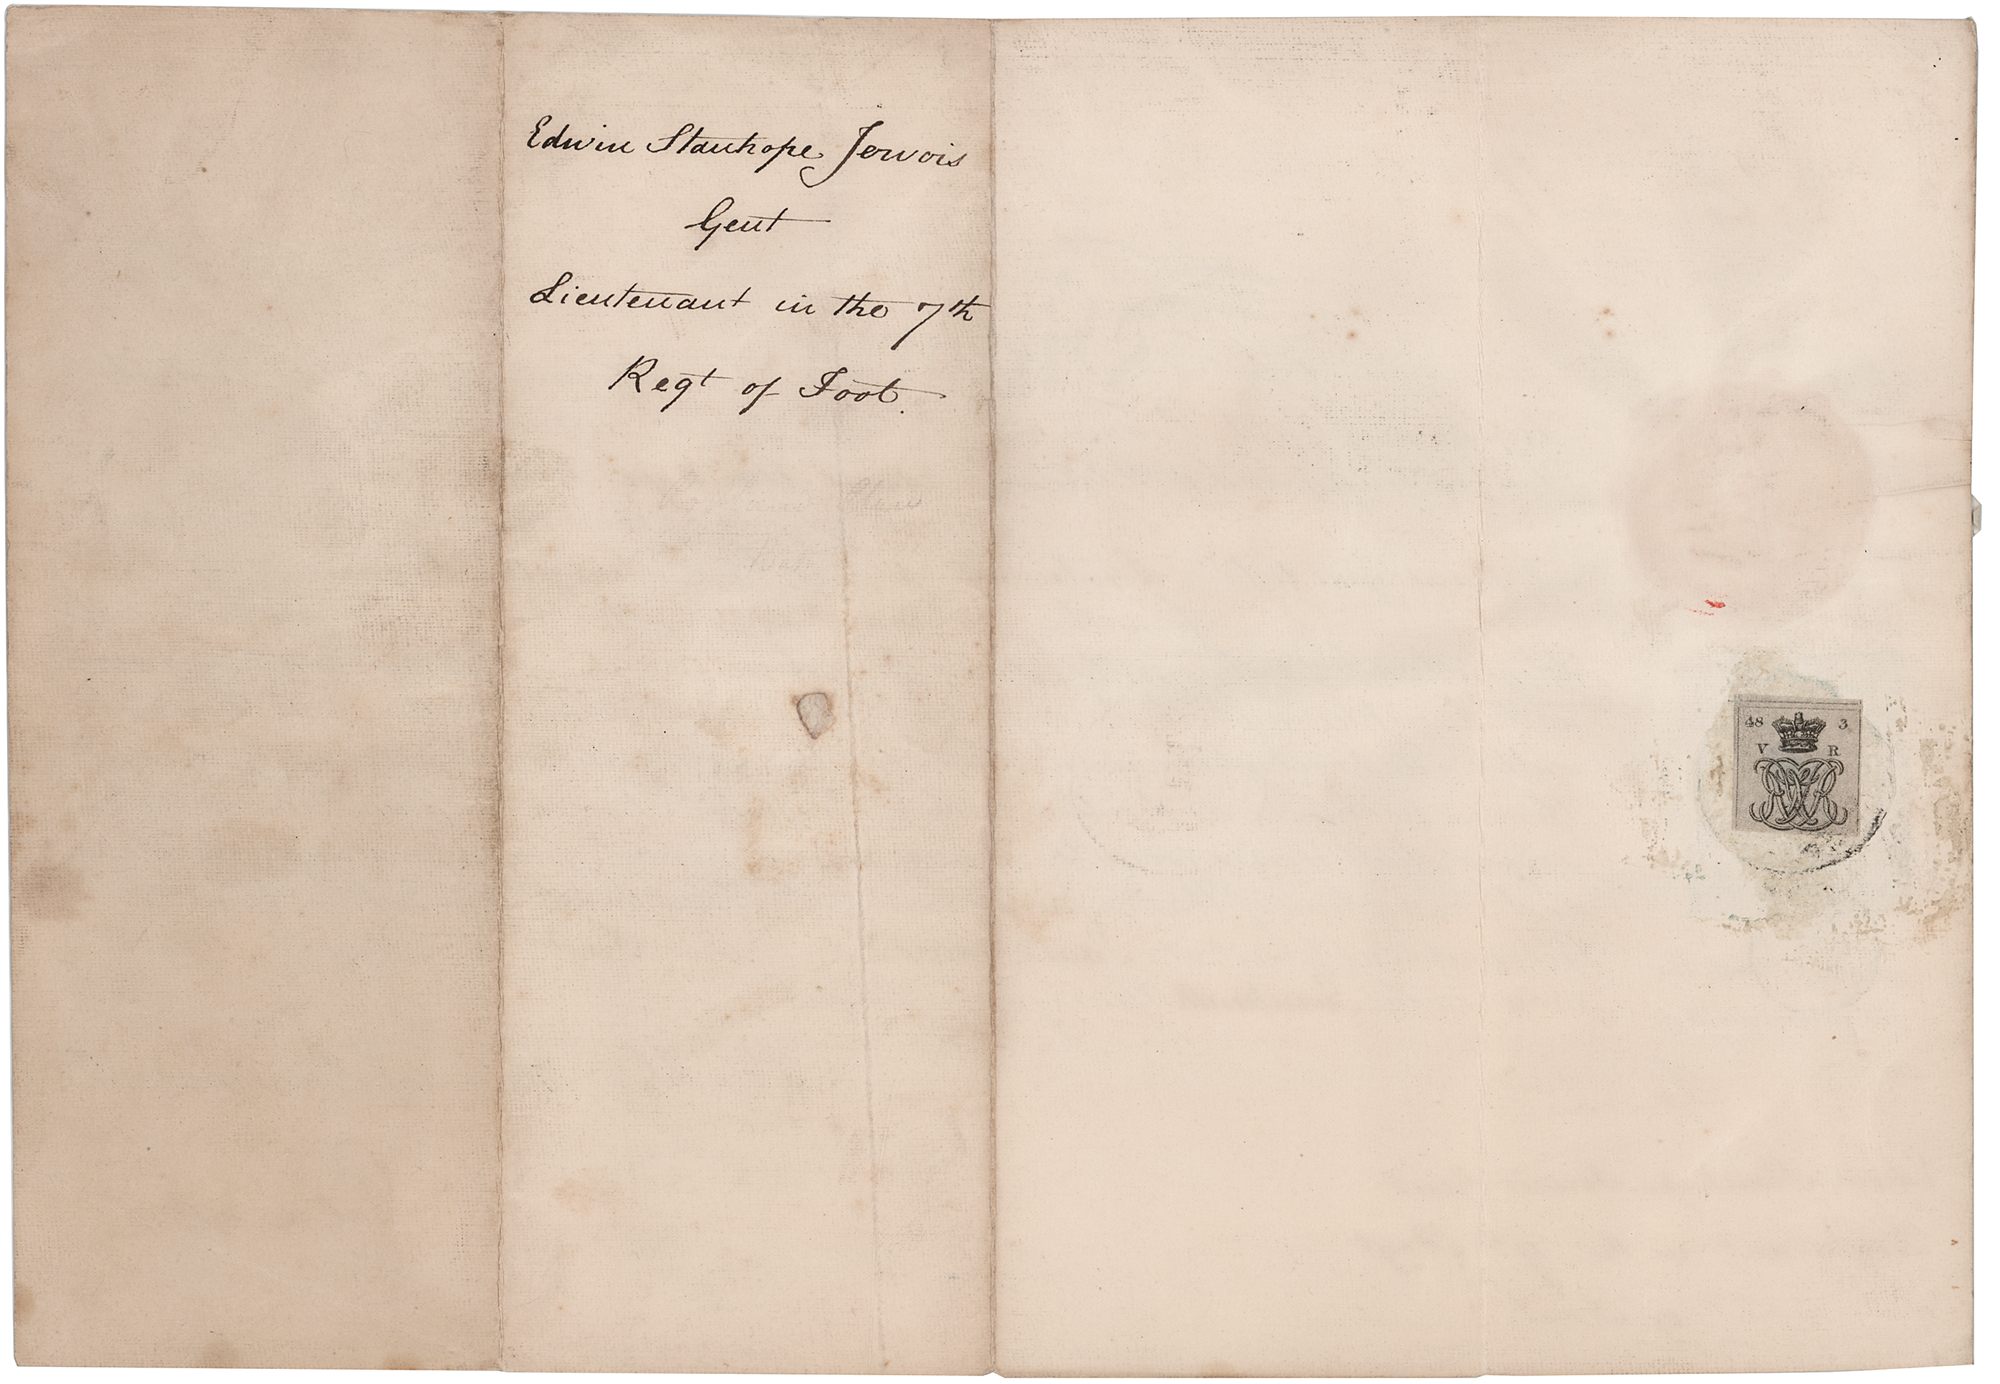 Edwin Stanhope Jervois
Gent
Lieutenant in the 7th
Regt of Foot.
48 3
V R